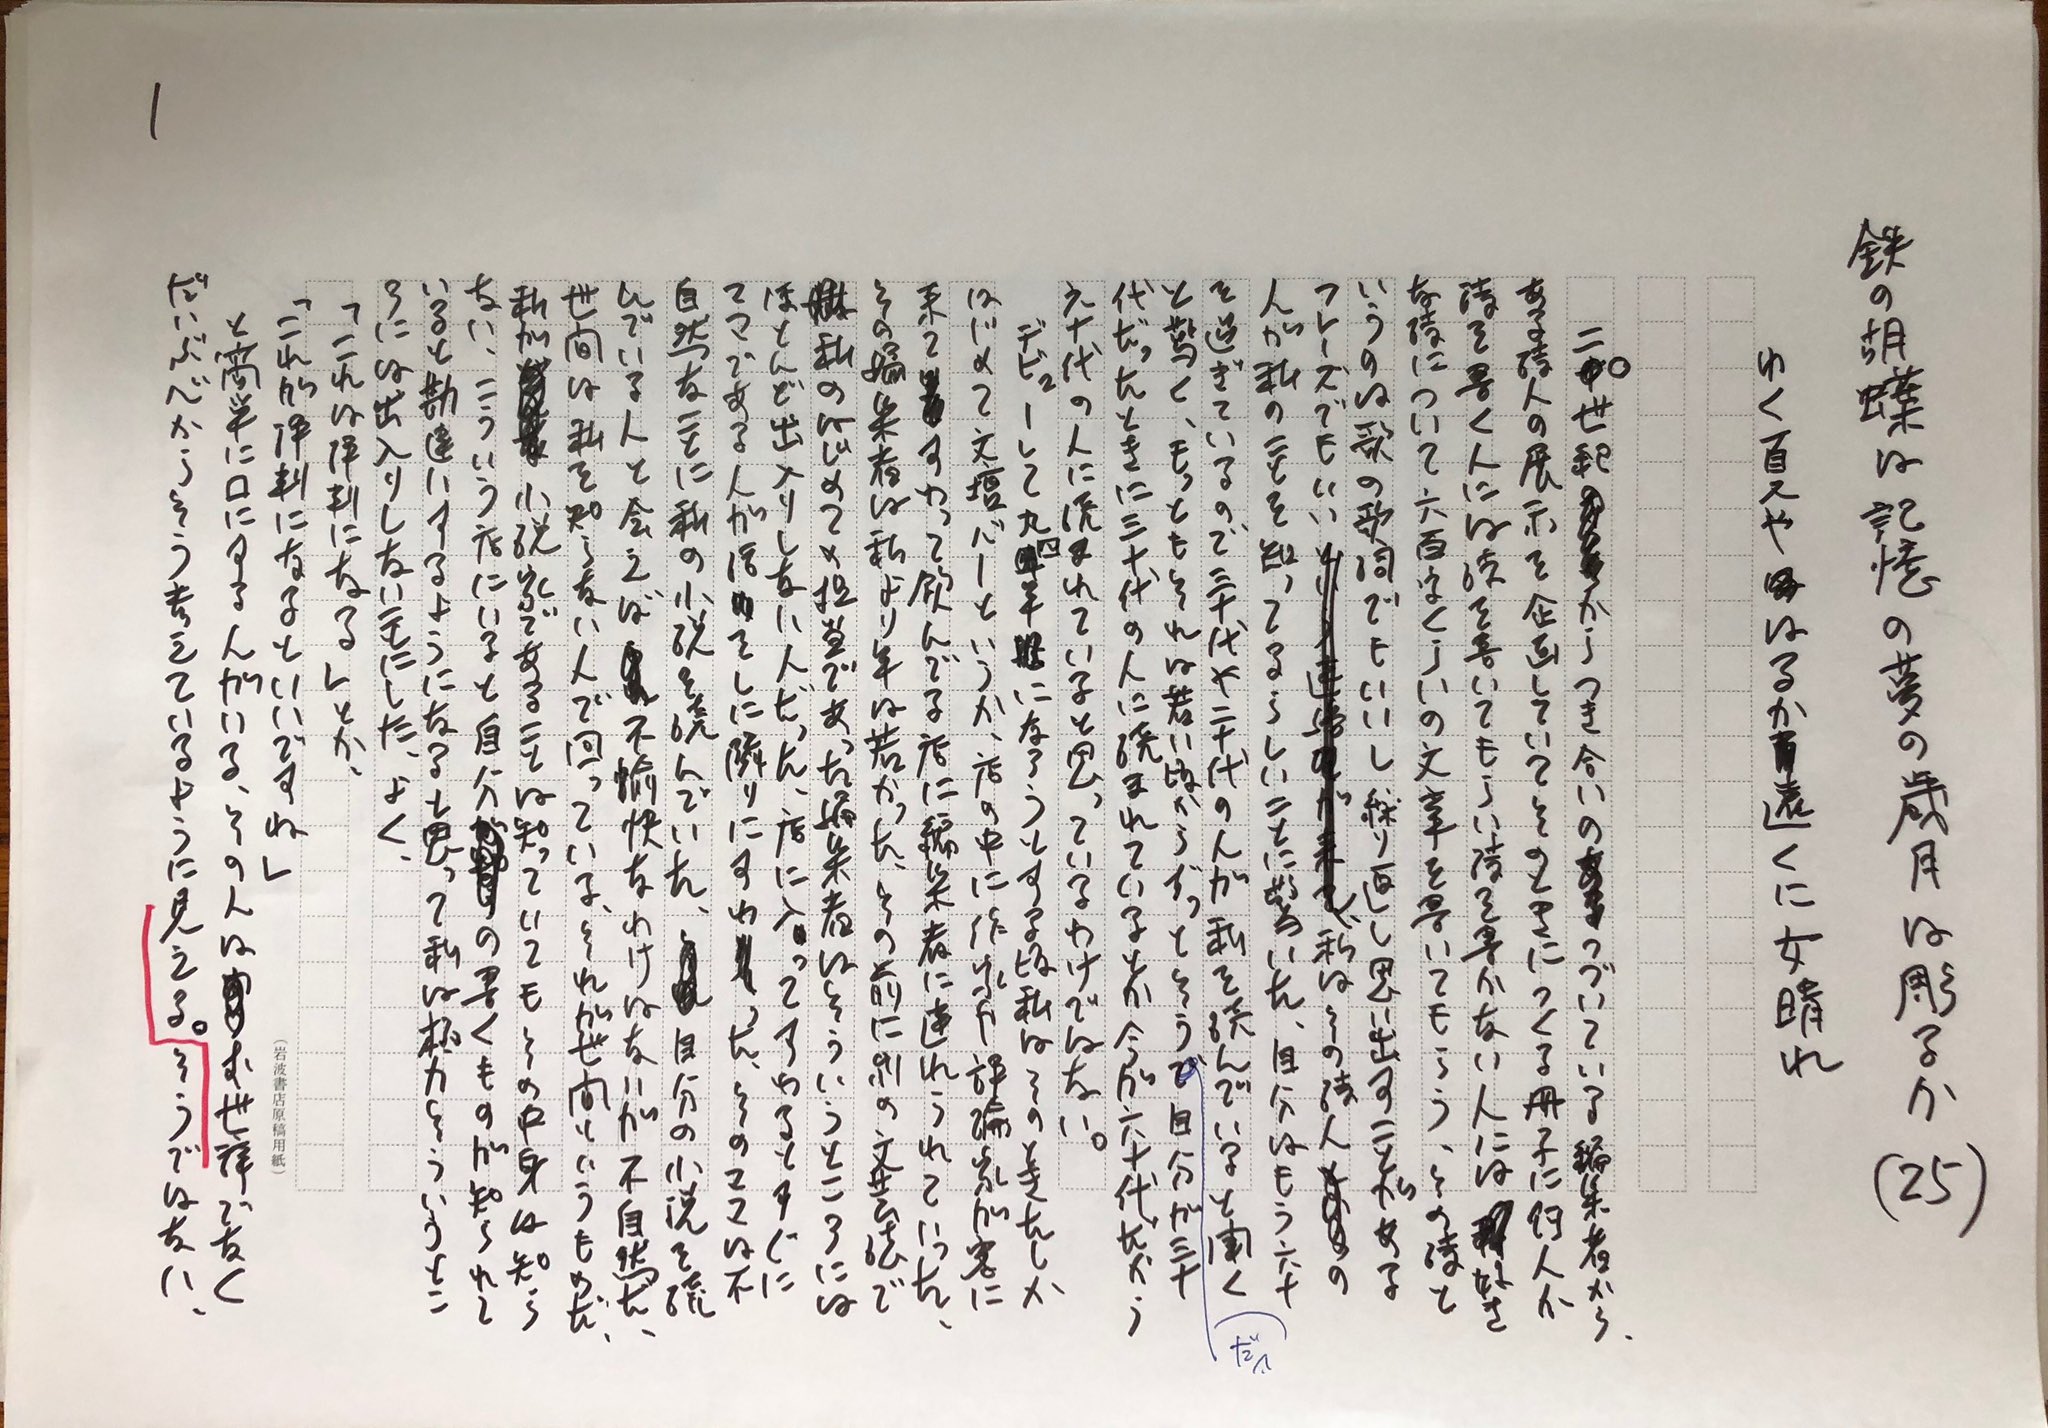 鉄の胡蝶は記憶の夢の歳月は彫るか(25)
ゆく夏や はるか遠くに女晴れ
二〇世紀からつき合いのつづいている編集者から、
ある詩人の展示を企画していてそのときにつくる冊子に何人か
詩を書く人には詩を書いてもらい詩を書かない人には好き
な詩について六百字くらいの文章を書いてもらう、その詩と
いうのは歌の歌詞でもいいし繰り返し思い出すことがある
フレーズでもいい 私はその詩人の
人が私のことを知ってるらしいことに驚いた、自分はもう六十
を過ぎているので三十代や二十代の人が私を読んでいると聞く
と驚く、もっともそれは若い頃からずっとそうで自分が三十
だい
代だったときに三十代の人に読まれているとか今が六十代だから
六十代の人に読まれていると思っているわけではない。
デビューして九〇年になろうとする頃私はそのときたしか
はじめて文壇バーというか、店の中に作家か評論家が客に
来てすわって飲んでる店に編集者に連れられていった、
その編集者は私より年は若かった、その前に別の文芸誌で
私のはじめての担当であった編集者はそういうところには
ほとんど出入りしない人だった、店に入ってすわるとすぐに
ママである人が私に隣りにすわった、そのママは不
自然なことに私の小説を読んでいた、自分の小説を読
んでいる人と会えば不愉快なわけはないが不自然だ、
世間は私を知らない人で回っている、それが世間というものだ、
私が小説家であることは知っていてもその中身は知ら
ない、こういう店にいると自分の書くものが知られて
いると勘違いするようになると思って私は極力そういうとこ
ろには出入りしないことにした、よく、
「これは評判になる」とか、
「これが評判になるといいですね」
と簡単に口にする人がいる、その人はお世辞でなく
だいぶ前からそう考えているように見える。そうではない、
(岩波書店原稿用紙)
1